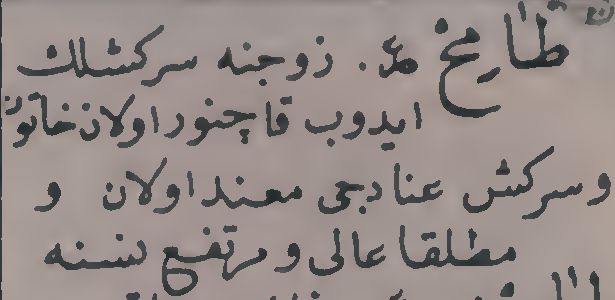 طامخ ع. زوجنه سركشلك
ايدوب قاچنور اولان خاتون
و سركش عنادجى معند اولان و
مطلقا عالى و مرتفع نسنه